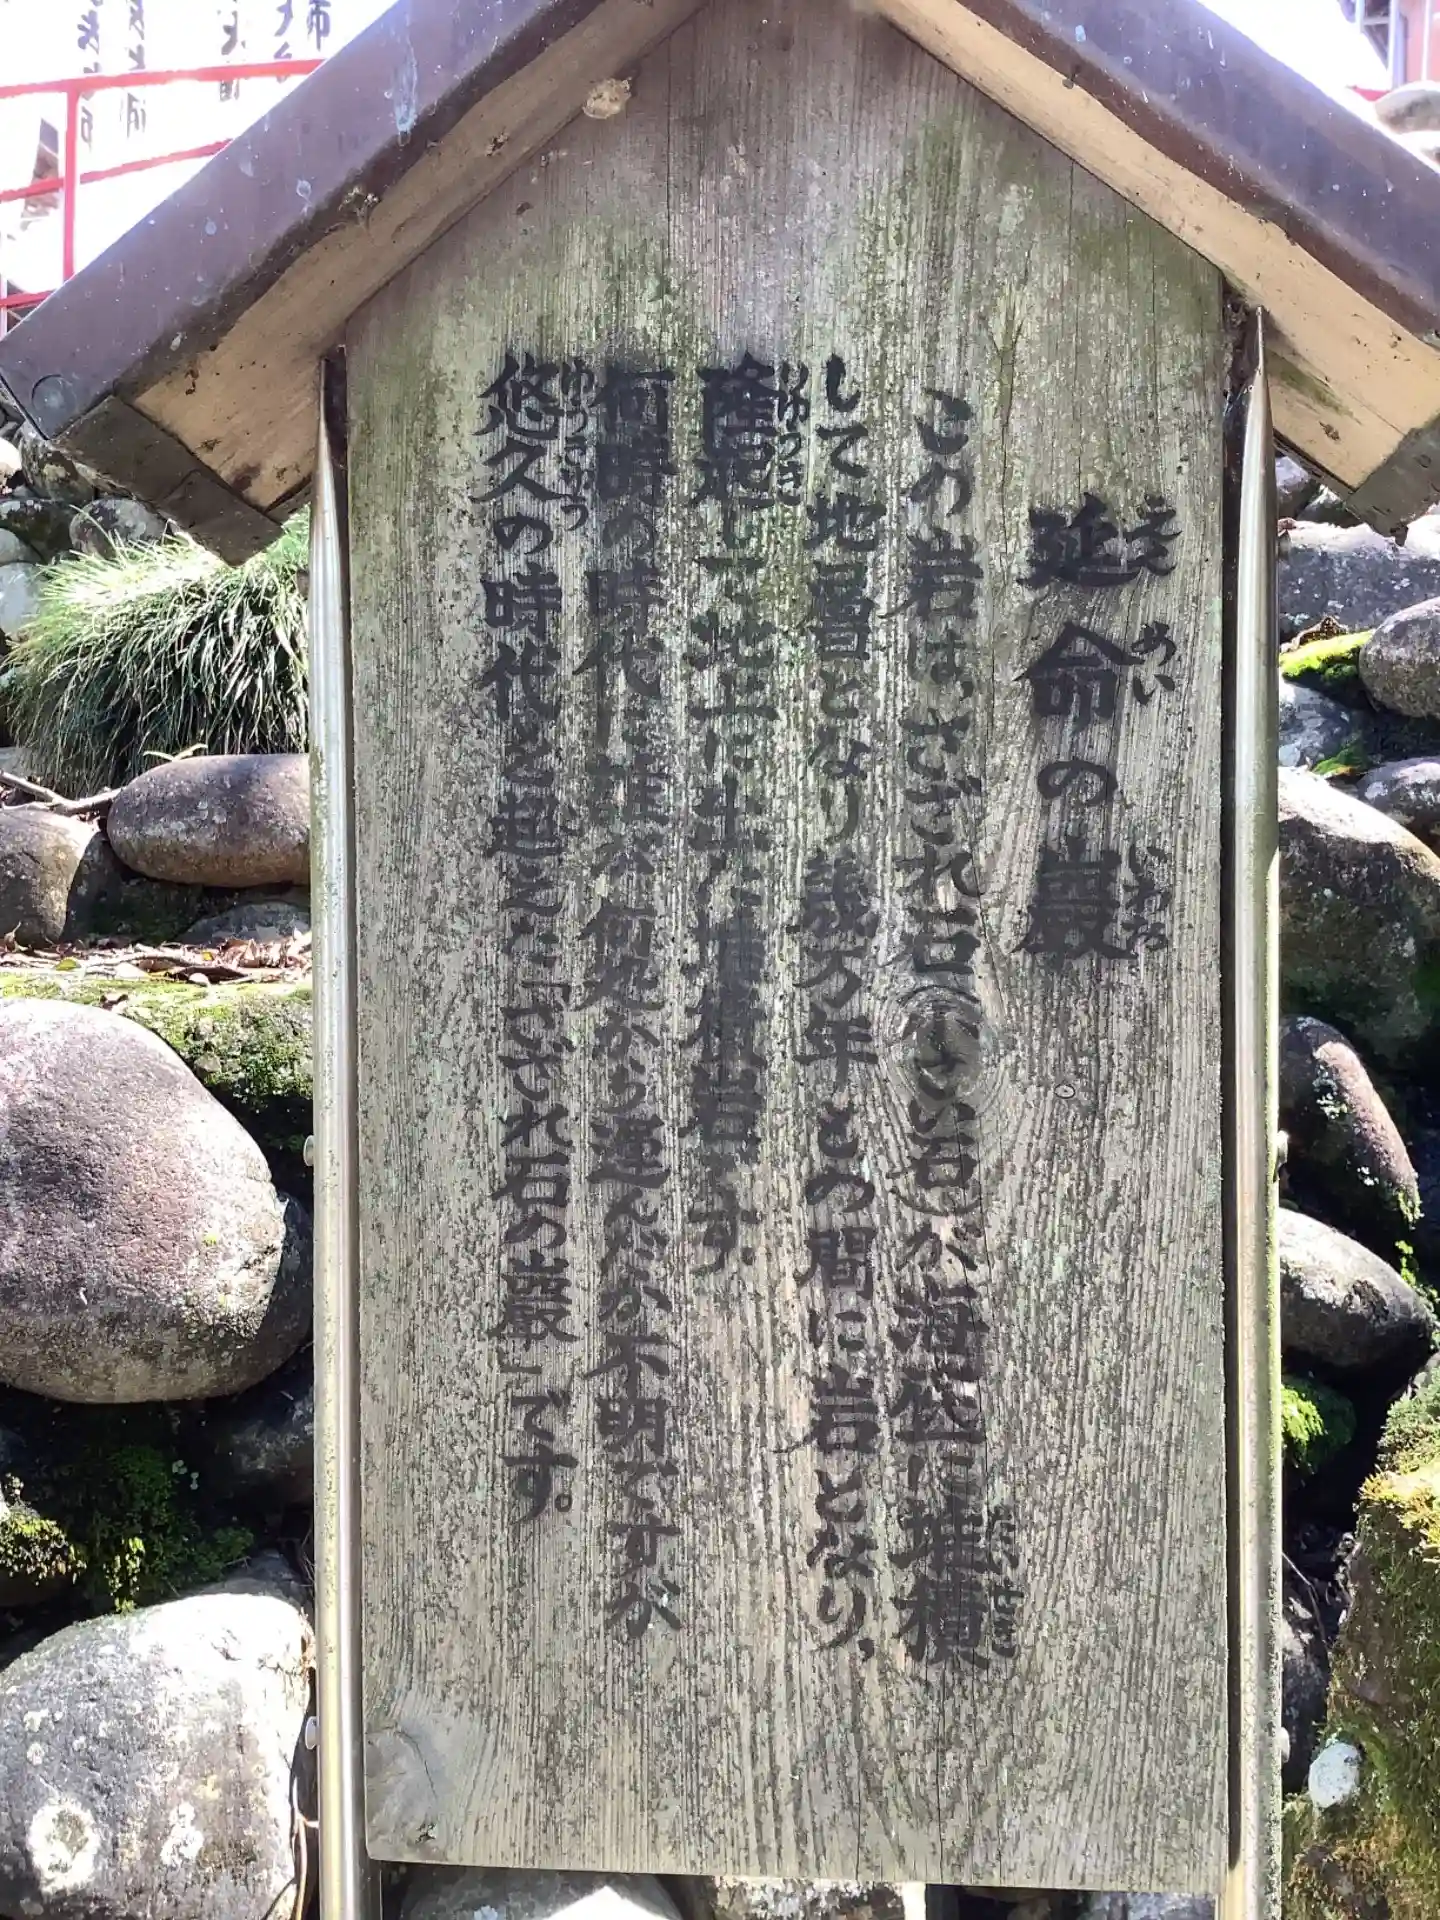 延命の巌
えんめい いわお
この岩は、さざれ石(小さい岩)が海底に堆積
たいせき
して地層となり幾万年との間に岩となり、
隆起して地上に出た堆積岩です
りゅうき
何時の時代に誰が何処から運んだか不明ですが
悠久の時代を越えた「さざれ石の巌」です。
ゆうきゅう